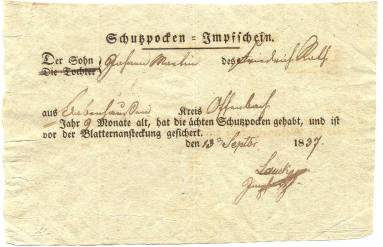 Schutzpocken = Impfschein.
Der Sohn Johann Martin des Friedrich
Die Tochter
aus Kreis Offenbach
Jahr 9 Monate alt, hat die ächten Schutzpocken gehabt, und ist
vor der Blatternansteckung gesichert.
den 13 Septbr 1837